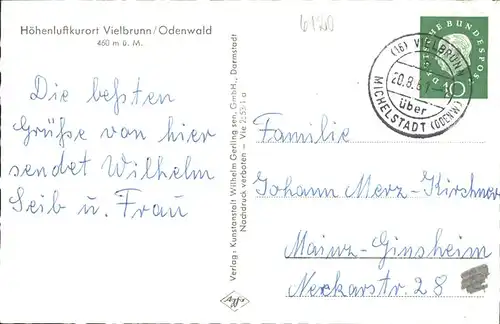 Höhenluftkurort Vielbrunn/Odenwald
460 m ü. M.
Die besten
Grüße von hier
sendet Wilhelm
Seib u. Frau
Verlag: Kunstanstalt Wilhelm Gerling sen. GmbH., Darmstadt
Nachdruck verboten – Vie 2553/1 a
Agfa
6120
DEUTSCHE BUNDESPOST
10
(16) VIELBRUNN
20.8.61
über
MICHELSTADT (ODENW)
Familie
Johann Merz-Kirchner
Mainz-Ginsheim
Neckarstr. 28